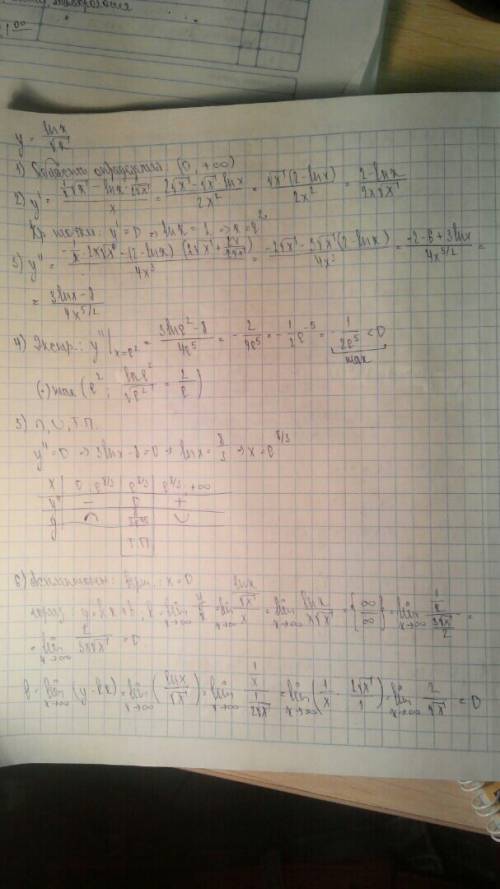 y = lnx/√x
1) Область определения (0, +∞)
2) y' = (1/x √x - lnx · 1/(2√x))/x = (2√x - √x lnx)/(2x²) = √x(2 - lnx)/(2x²) = (2 - lnx)/(2x√x)
y' = 0 ⇒ lnx = 2 ⇒ x = e²
3) y'' =
= (3lnx - 8)/(4x^(5/2))
4) Экстр.: y''|x=e² = (3lne² - 8)/(4e⁵) = -2/(4e⁵) = -1/2 e⁻⁵ = -1/(2e⁵) < 0
max
(·) max (e²; lne²/√e² = 2/e)
5) ∩, ∪, т.п.
y'' = 0 ⇒ 3lnx - 8 = 0 ⇒ lnx = 8/3 ⇒ x = e^(8/3)
x | 0, e^(8/3) | e^(8/3) | e^(8/3), +∞
y'' | - | 0 | +
y | ∩ | | ∪
т.п.
6) Асимптоты: верт.: x = 0
y = kx + b, k = lim x→∞ y/x = lim x→∞ (lnx/√x)/x = lim x→∞ lnx/(x√x) = {∞/∞} = lim x→∞ (1/x)/(3√x/2) =
= lim x→∞ 2/(3x√x) = 0
b = lim x→∞ (y - kx) = lim x→∞ (lnx/√x) = lim x→∞ (1/x)/(1/(2√x)) = lim x→∞ (1/x · 2√x/1) = lim x→∞ 2/√x = 0